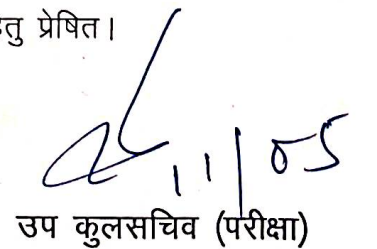 तु प्रेषित।
11/05
उप कुलसचिव (परीक्षा)